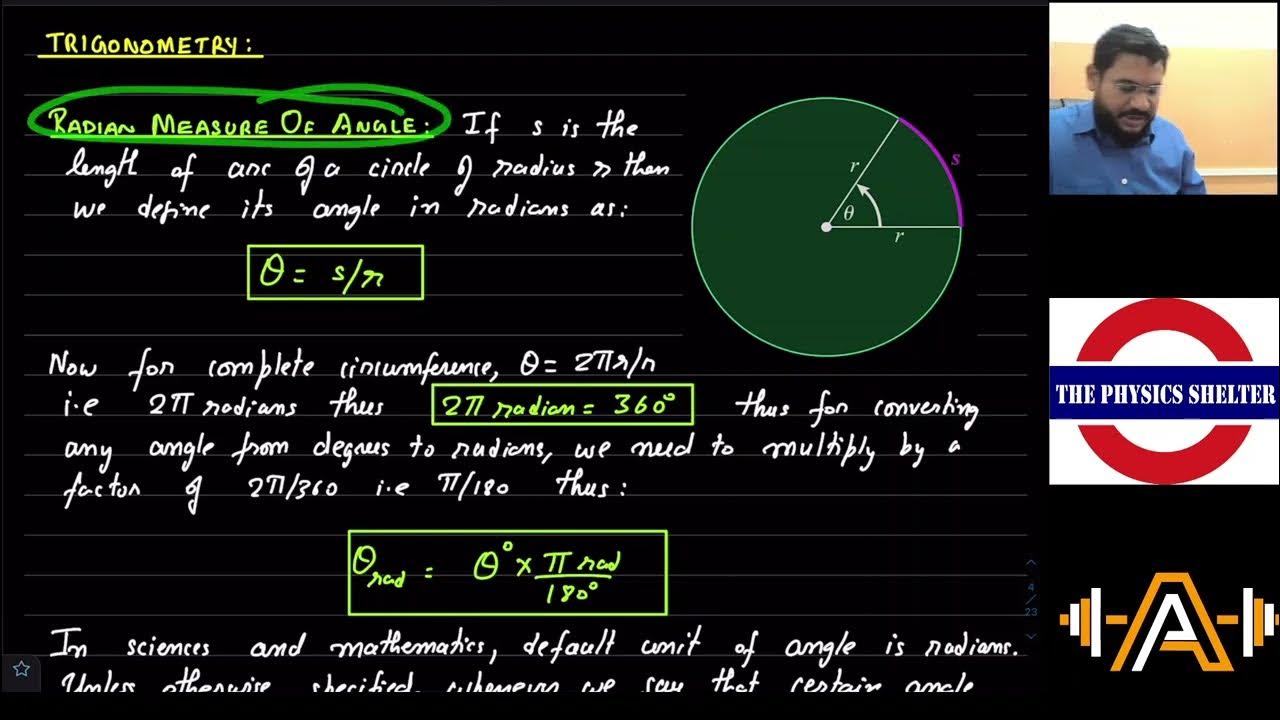 TRIGONOMETRY:
RADIAN MEASURE OF ANGLE: If s is the
length of arc of a circle of radius r then
we define its angle in radians as:
θ = s/r
r
s
θ
r
Now for complete circumference, θ = 2πr/r
i.e 2π radians thus 2π radian = 360° thus for converting
any angle from degrees to radians, we need to multiply by a
factor of 2π/360 i.e π/180 thus:
θrad = θ° × π rad / 180°
In sciences and mathematics, default unit of angle is radians.
Unless otherwise specified, whenever we say that certain angle
THE PHYSICS SHELTER
4
/
23
A